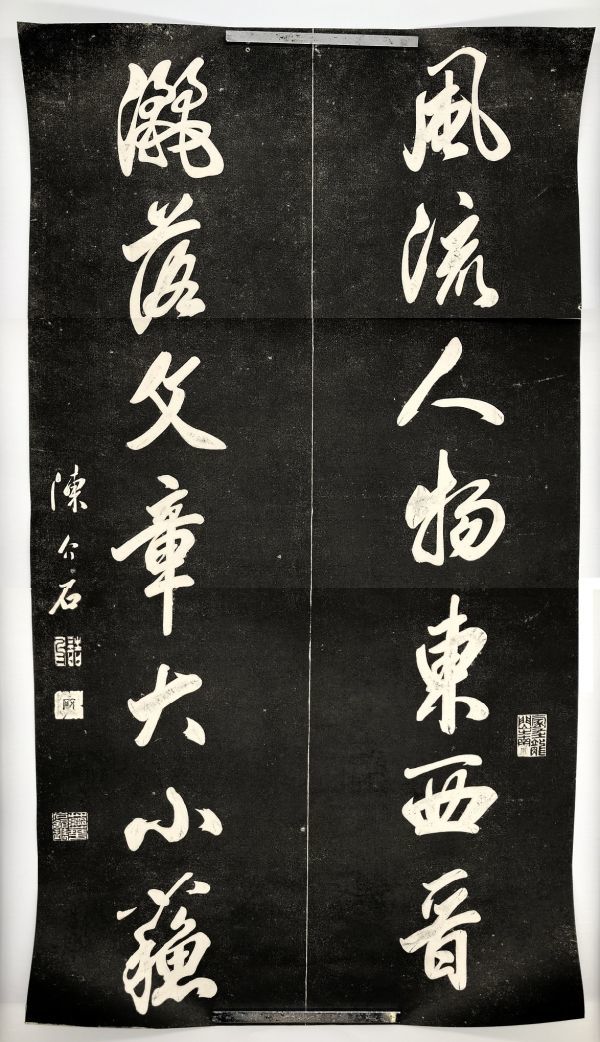 風流人物東西晋
灑落文章大小蘓
陳介石